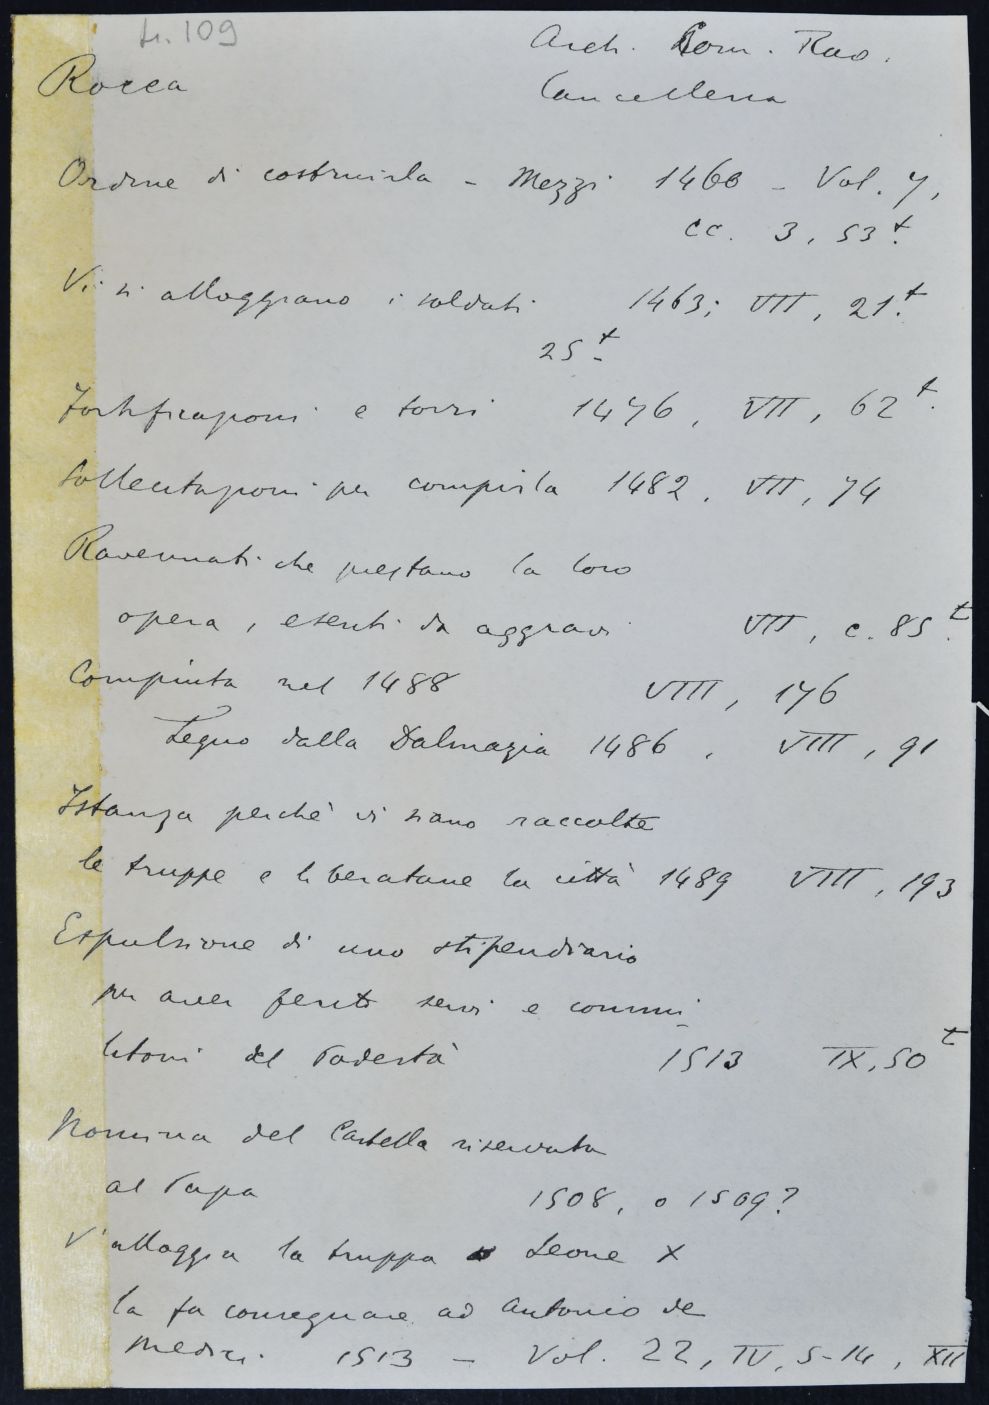 tr. 109
Arch. Com. Rav.
Rocca
Cancelleria
Ordine di costruirla - Mezzi 1460 - Vol. 7,
cc. 3, 53t.
Vi si alloggiano i soldati 1463; VII, 21t.
25t.
Fortificazioni e torri 1476, VII, 62t.
Sollecitazioni per compirla 1482, VII, 74
Ravennati che prestano la loro
opera, esenti da aggravi VII, c. 85t.
Compiuta nel 1488 VIII, 176
Legno dalla Dalmazia 1486, VIII, 91
Istanza perchè vi siano raccolte
le truppe e liberatane la città 1489 VIII, 193
Espulsione di uno stipendiario
per aver ferito servi e commi-
litoni del Podestà 1513 IX, 50t
Nomina del Castella riservata
al Papa 1508, o 1509?
V'alloggia la truppa Leone X
la fa consegnare ad Antonio de
Medici. 1513 - Vol. 22, IV, 5-14, XII